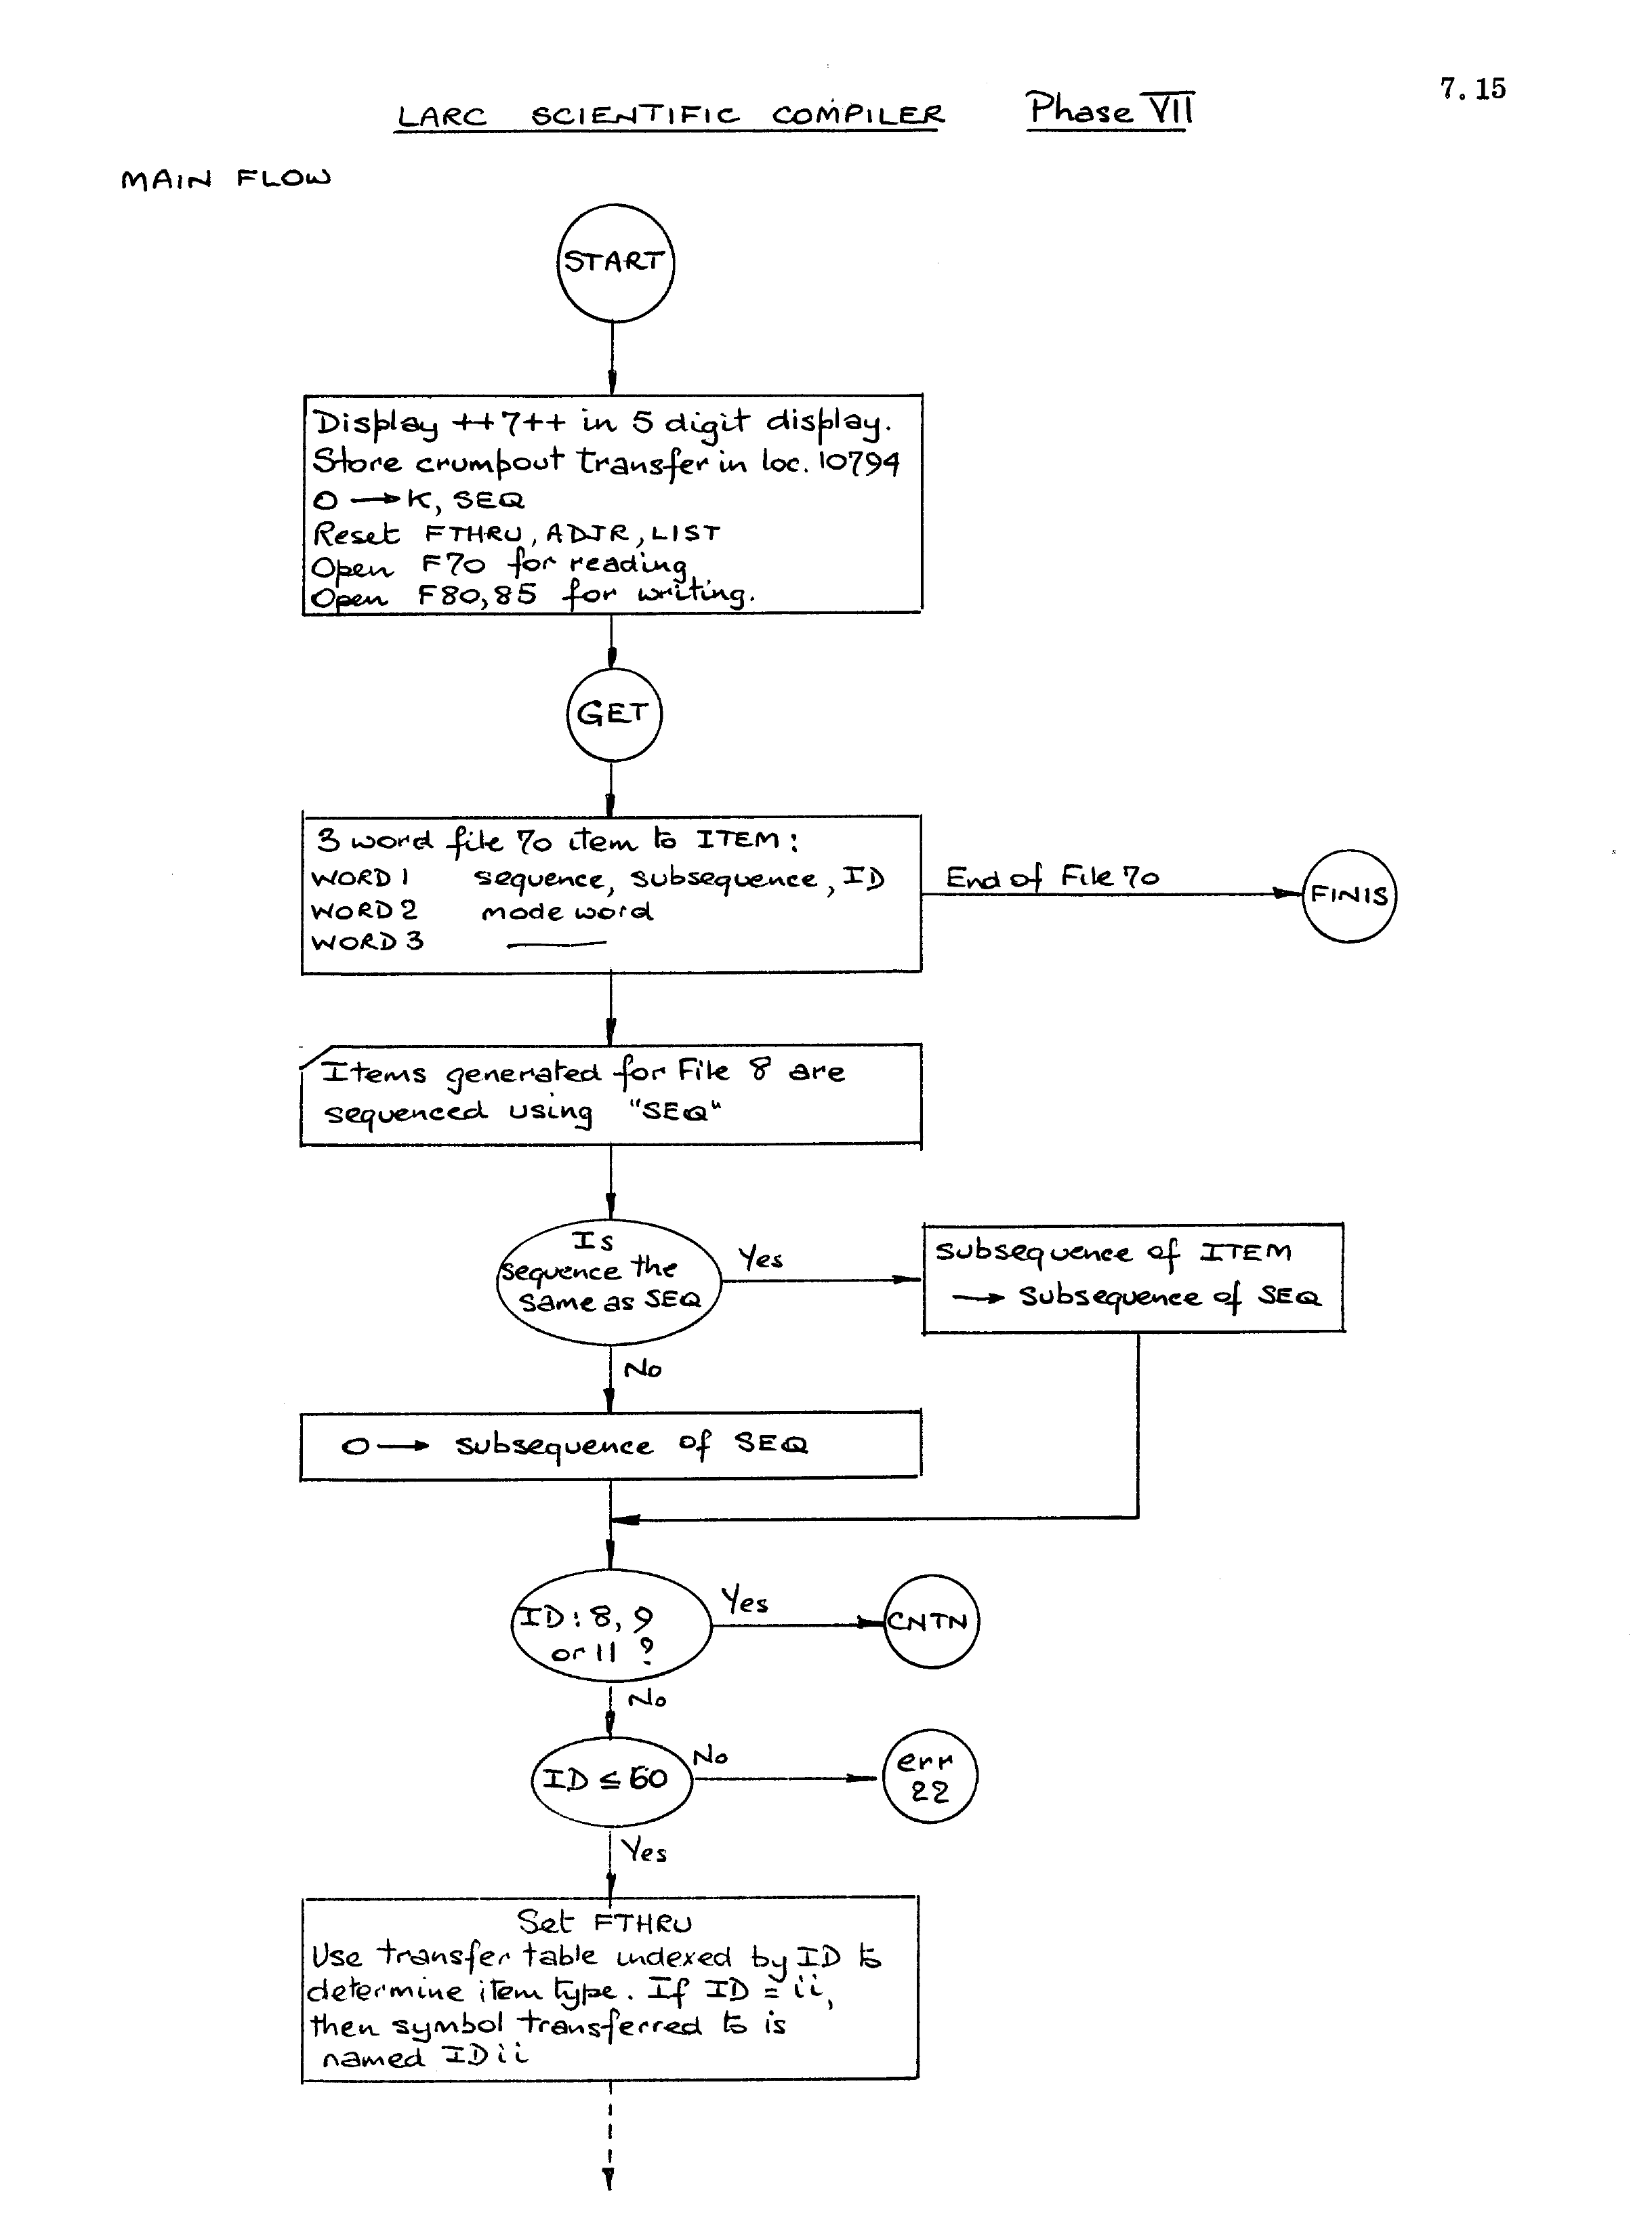 7.15
LARC SCIENTIFIC COMPILER Phase VII
MAIN FLOW
START
Display ++7++ in 5 digit display.
Store crumpout transfer in loc. 10794
0 → K, SEQ
Reset FTHRU, ADJR, LIST
Open F70 for reading
Open F80,85 for writing.
GET
3 word file 70 item to ITEM:
WORD 1 sequence, subsequence, ID
WORD 2 mode word
WORD 3 ———
End of File 70
FINIS
Items generated for File 8 are
sequenced using "SEQ"
Is
sequence the
same as SEQ
Yes
subsequence of ITEM
→ subsequence of SEQ
No
0 → subsequence of SEQ
ID: 8, 9
or 11 ?
Yes
CNTN
No
ID ≤ 60
No
err
22
Yes
Set FTHRU
Use transfer table indexed by ID to
determine item type. If ID = ii,
then symbol transferred to is
named IDii